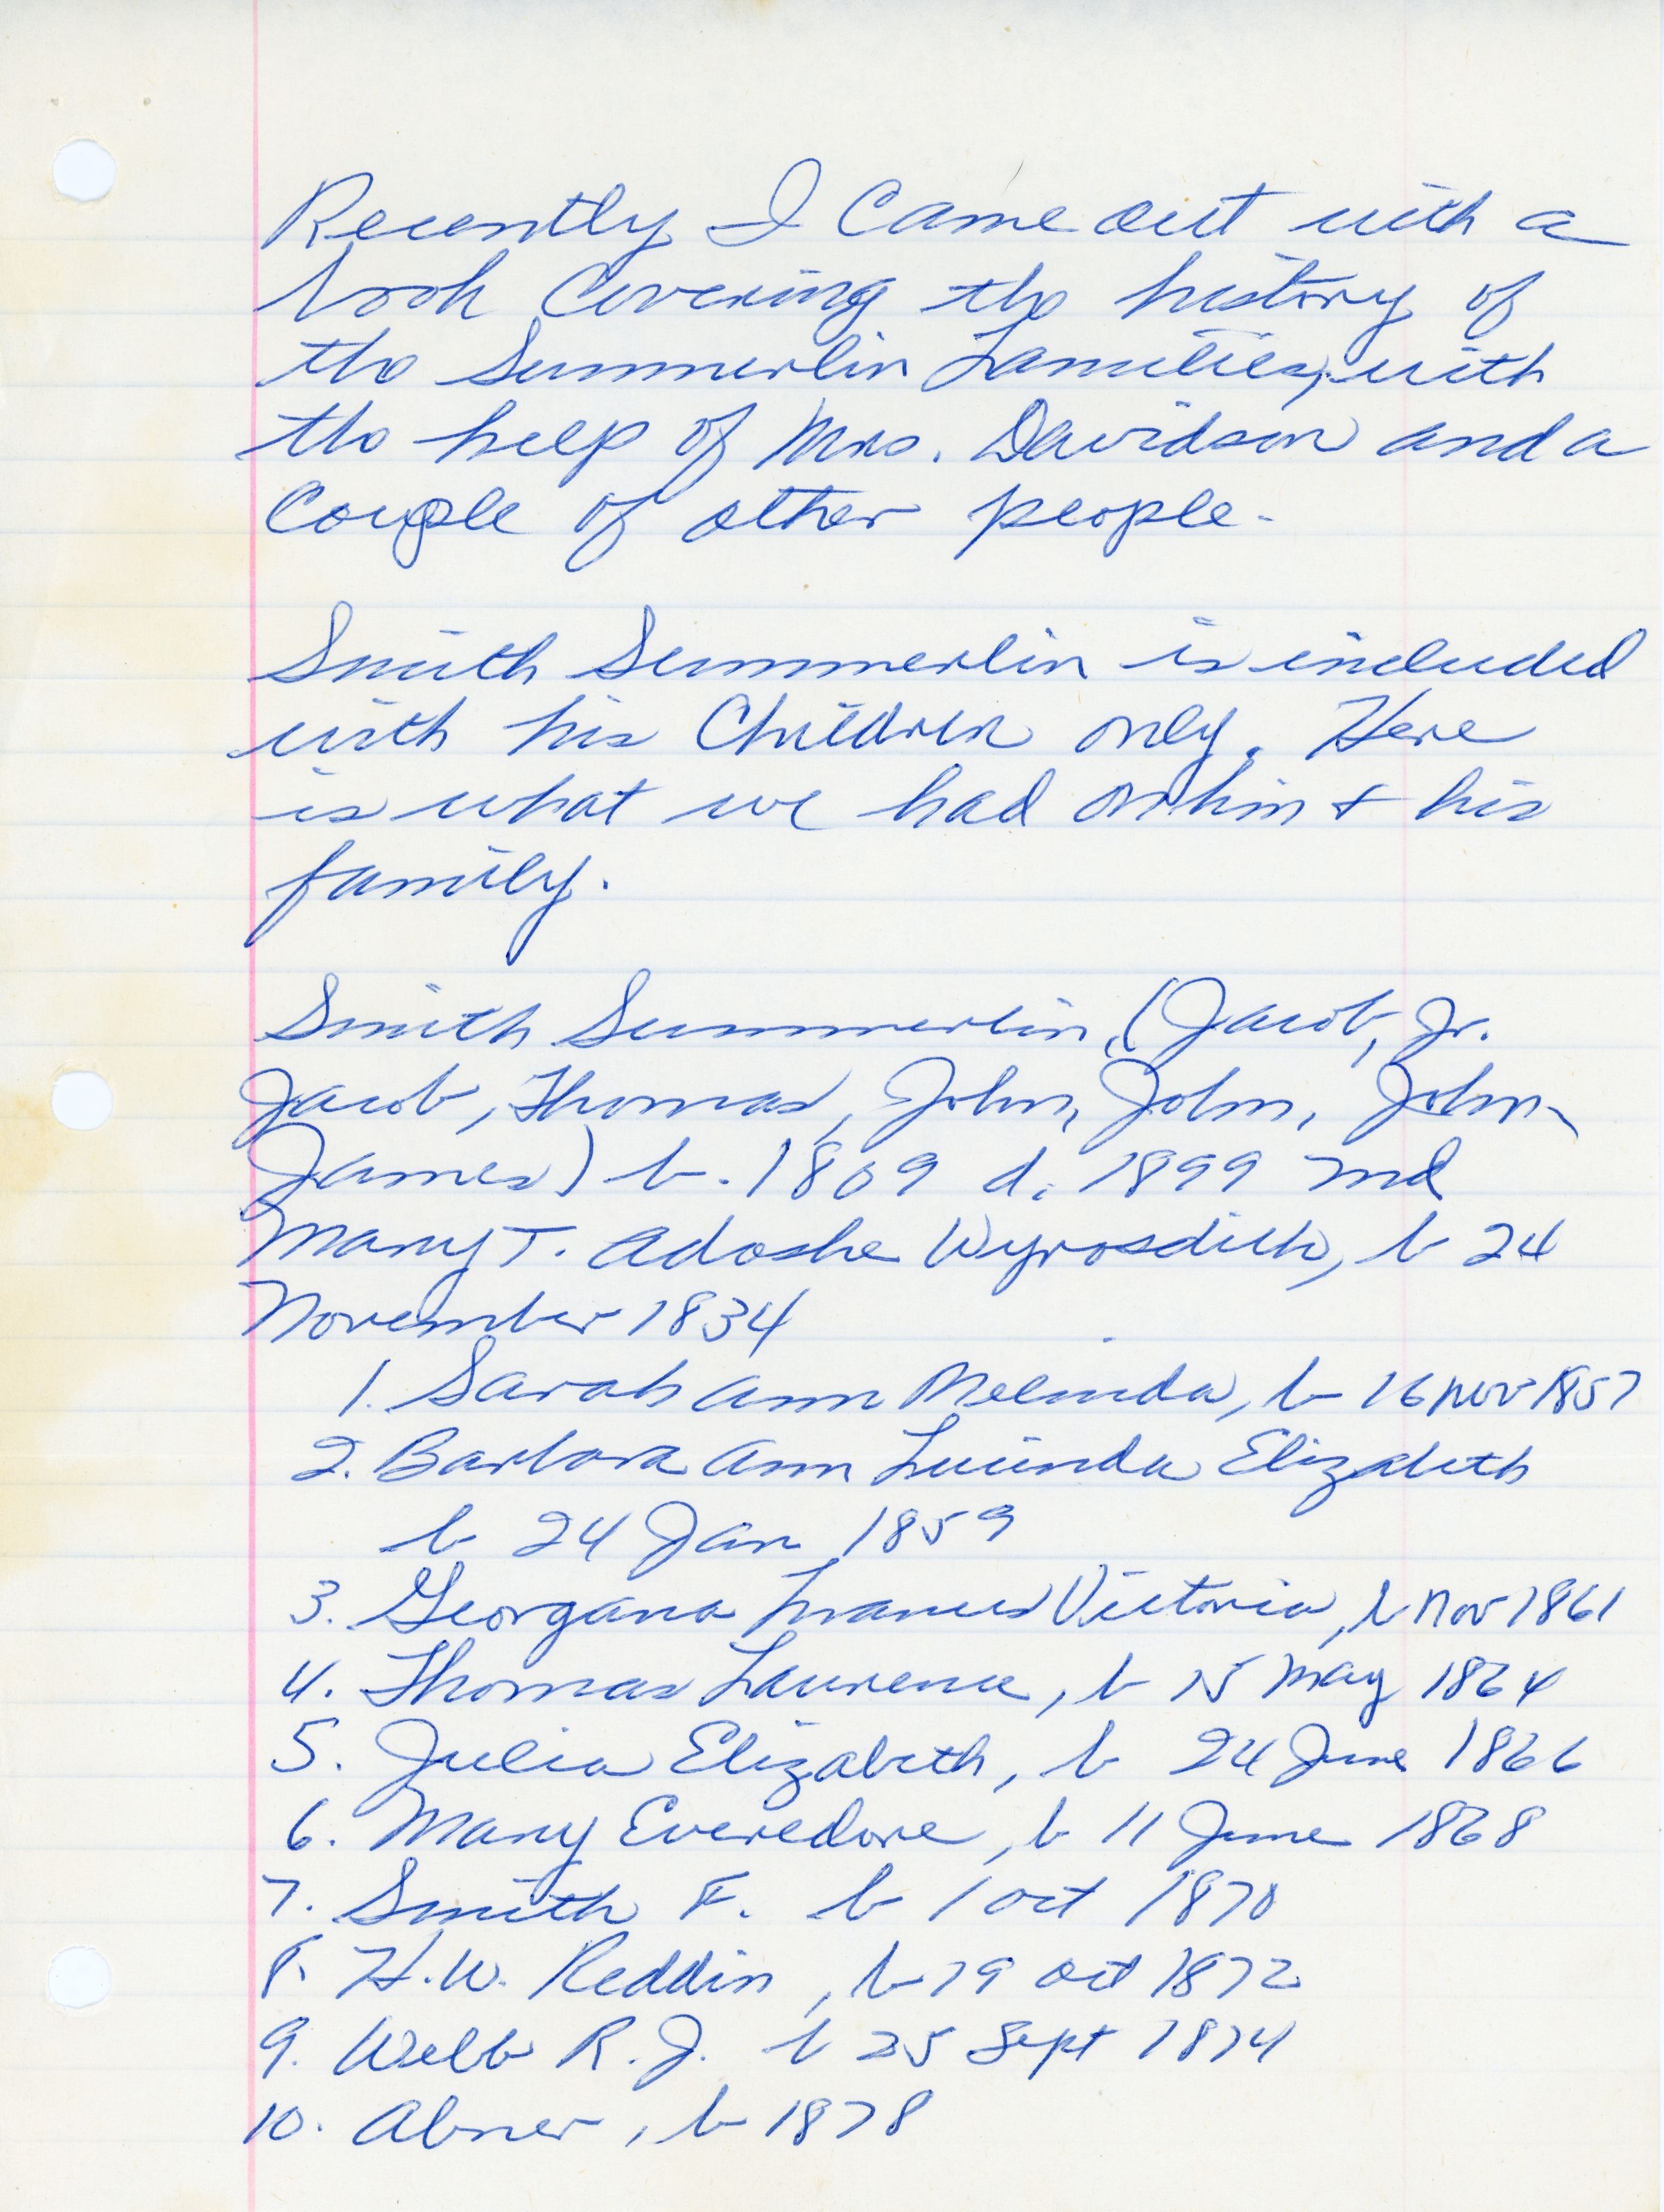 Recently I came out with a
book covering the history of
the Summerlin Families, with
the help of Mrs. Davidson and a
couple of other people.
Smith Summerlin is included
with his Children only. Here
is what we had on him + his
family.
Smith Summerlin, (Jacob, Jr.
Jacob, Thomas, John, John, John,
James) b. 1809 d. 1899 md
Mary T. Adoshe Wyrosdick, b 24
November 1834
1. Sarah Ann Melinda, b 16 Nov 1857
2. Barbara Ann Lucinda Elizabeth
b 24 Jan 1859
3. Georgana Frances Victoria, b Nov 1861
4. Thomas Laurence, b 15 May 1864
5. Julia Elizabeth, b 24 June 1866
6. Mary Everedore, b 11 June 1868
7. Smith F. b 1 Oct 1870
8. H.W. Reddin, b 19 Oct 1872
9. Webb R.J. b 25 Sept 1874
10. Abner, b 1878